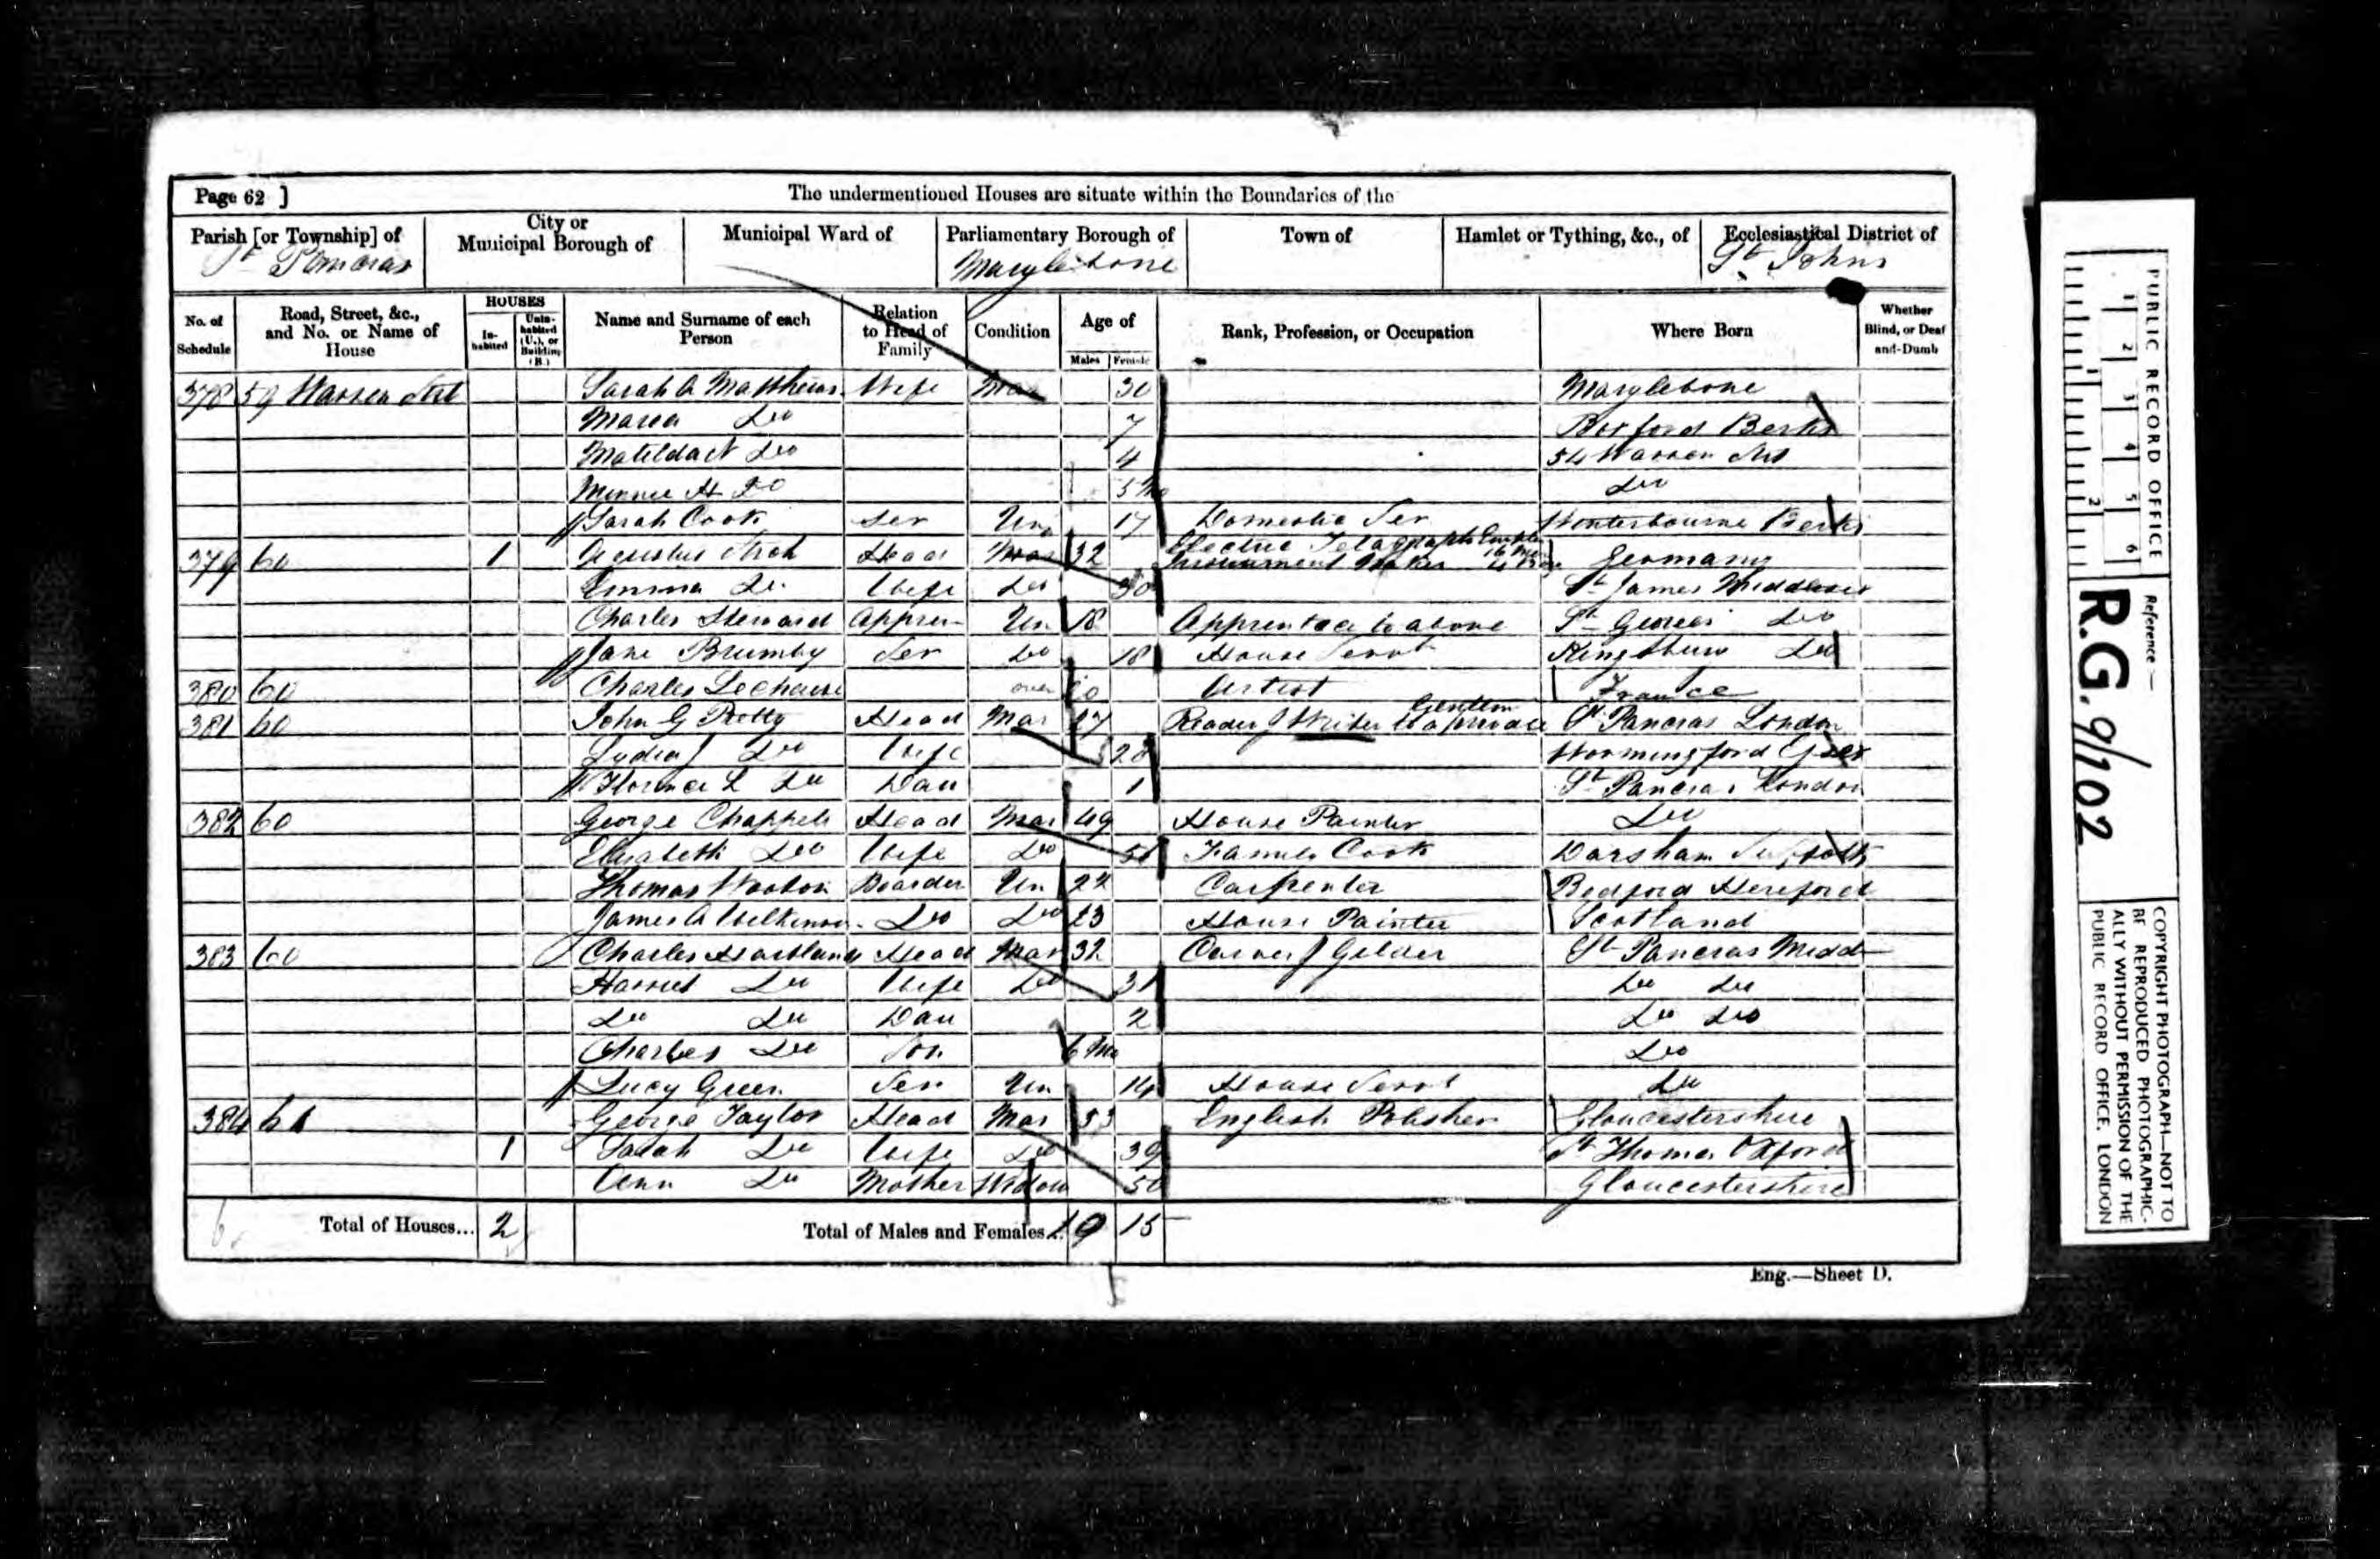 Page 62 ]
The undermentioned Houses are situate within the Boundaries of the
Parish [or Township] of
St Pancras
City or
Municipal Borough of
Municipal Ward of
Parliamentary Borough of
Marylebone
Town of
Hamlet or Tything, &c., of
Ecclesiastical District of
St Johns
No. of Schedule
Road, Street, &c., and No. or Name of House
HOUSES
In-habited
Unin-habited (U.), or Building (B.)
Name and Surname of each Person
Relation to Head of Family
Condition
Age of
Males
Females
Rank, Profession, or Occupation
Where Born
Whether Blind, or Deaf-and-Dumb
378 59 Warren Strt Sarah A Matthews Wife Mar 30 Marylebone
Maria Do 7 Boxford Berks
Matilda N Do 4 54 Warren Strt
Minnie H Do 5 Mo Do
Sarah Cook Ser Un 17 Domestic Ser Winterbourne Berks
379 60 1 Augustus Stroh Head Mar 32 Electric Telegraph Instrument Maker Germany
Emma Do Wife Do 30 St James Middlesex
Charles Steward Appren Un 18 Apprentice to above St Georges Do
Jane Brumby Ser Do 18 House Servt Kingsbury Do
380 60 Charles over 20 Artist France
381 60 John G Pretty Head Mar 27 Reader & Writer to a private Gentlm St Pancras London
Lydia J Do Wife 28 Wormingford Essex
Florence L Do Dau 1 St Pancras London
382 60 George Chappell Head Mar 49 House Painter Do
Elizabeth Do Wife Do 51 Family Cook Darsham Suffolk
Thomas Wooton Boarder Un 22 Carpenter Bedford Hereford
James A Wilkinson Do Do 23 House Painter Scotland
383 60 Charles Hartland Head Mar 32 Carver & Gilder St Pancras Midd
Harriet Do Wife Do 31 Do Do
Do Do Dau 2 Do Do
Charles Do Son 6 Mo Do
Lucy Green Ser Un 14 House Servt Do
384 61 George Taylor Head Mar 33 English Polisher Gloucestershire
1 Sarah Do Wife Do 39 St Thomas Oxford
Ann Do Mother Widow 50 Gloucestershire
Total of Houses... 2
Total of Males and Females... 10 15
Eng.—Sheet D.
PUBLIC RECORD OFFICE
1 2 3 4 5 6
1 2
Reference :—
R.G. 9/102
COPYRIGHT PHOTOGRAPH—NOT TO
BE REPRODUCED PHOTOGRAPHIC-
ALLY WITHOUT PERMISSION OF THE
PUBLIC RECORD OFFICE, LONDON